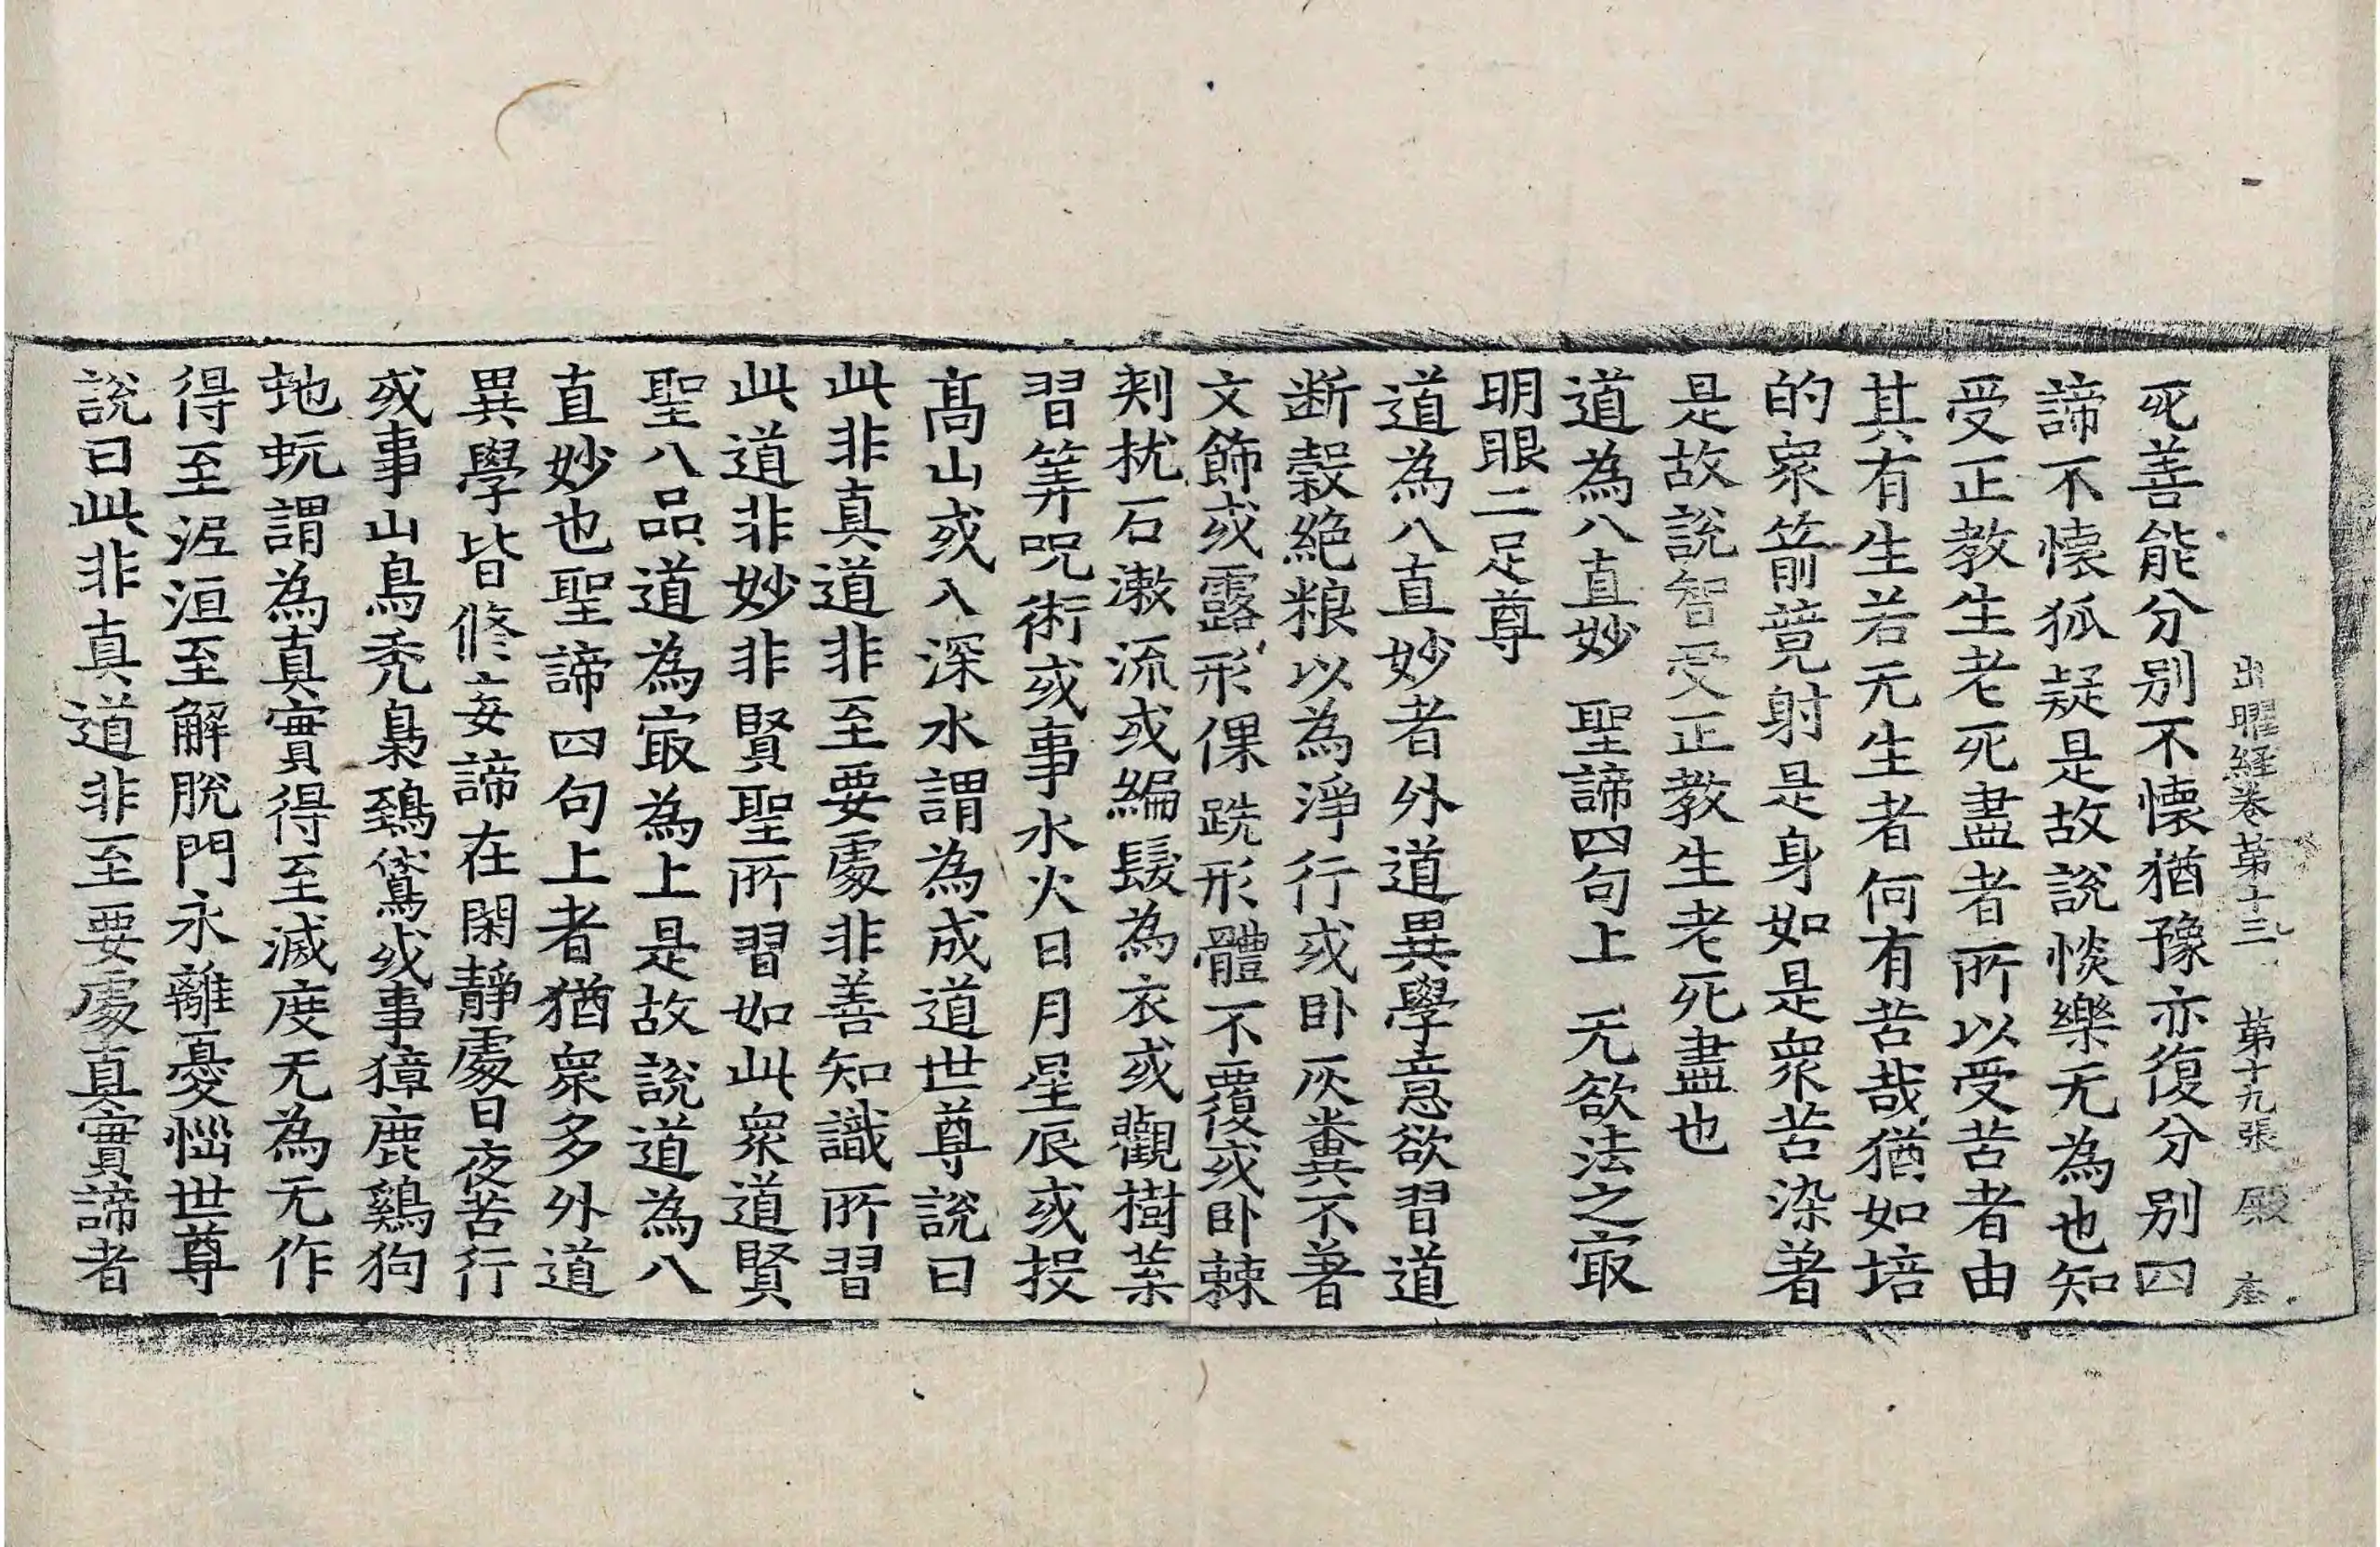 出曜經卷第十三 第十九張 殿
死善能分別不懷猶豫亦復分別四
諦不懷狐疑是故說惔樂无為也知
受正教生老死盡者所以受苦者由
其有生若无生者何有苦哉猶如培
的衆箭競射是身如是衆苦染著
是故說智受正教生老死盡也
道為八直妙 聖諦四句上 无欲法之㝡
明眼二足尊
道為八直妙者外道異學意欲習道
断穀絶粮以為淨行或卧灰糞不著
文飾或露形倮跣形體不覆或卧棘
刾枕石漱流或編髮為衣或觀樹葉
習筭呪術或事水火日月星辰或投
髙山或入深水謂為成道世尊說曰
此非真道非至要處非善知識所習
此道非妙非賢聖所習如此衆道賢
聖八品道為㝡為上是故說道為八
直妙也聖諦四句上者猶衆多外道
異學皆修妄諦在閑靜處日夜苦行
或事山鳥禿梟鵄鵂或事獐鹿鷄狗
虵蚖謂為真實得至滅度无為无作
得至泥洹至解脫門永離憂惱世尊
說曰此非真道非至要處真實諦者